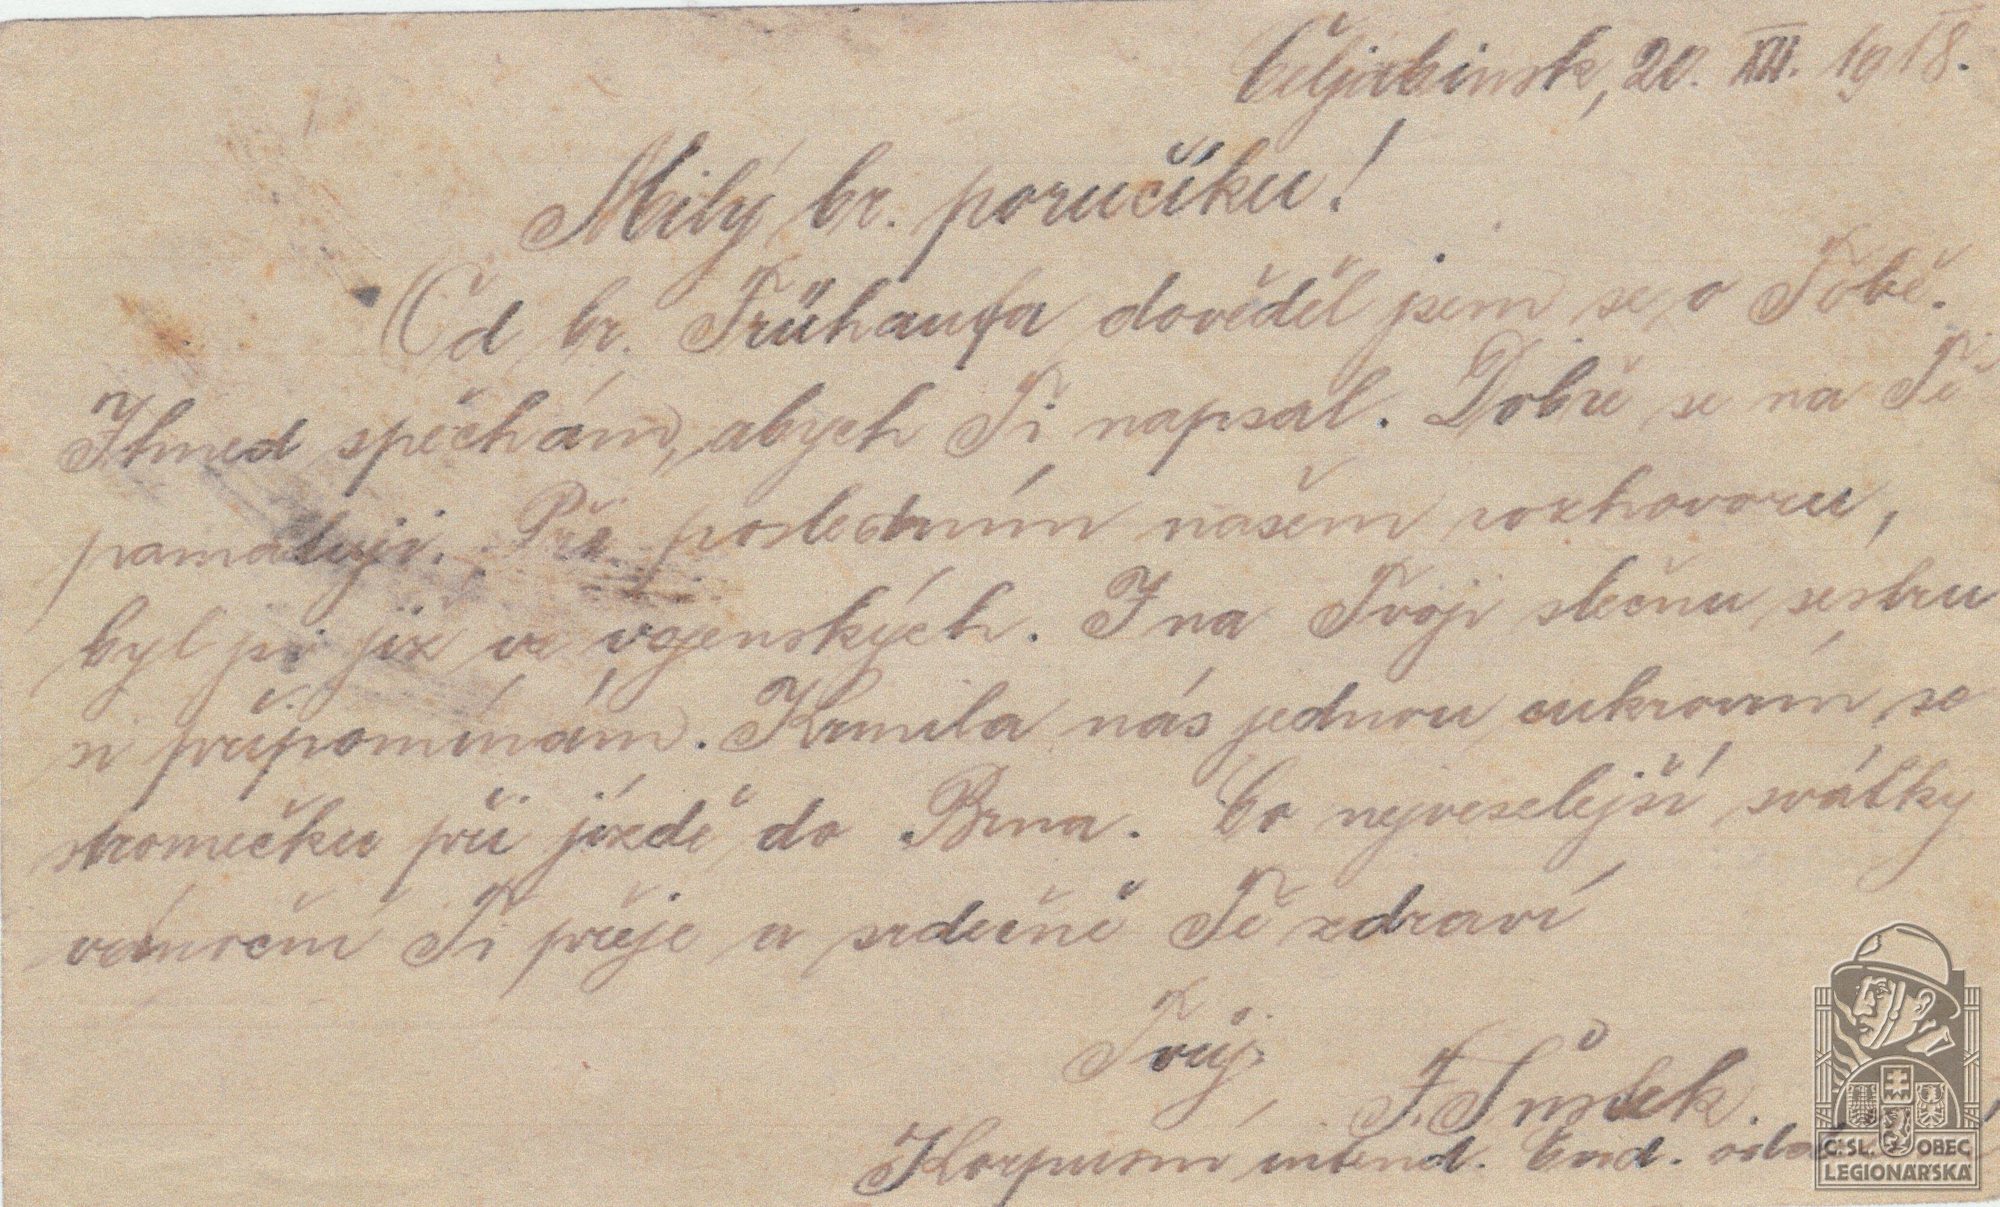 Čeljabinsk, 20. XII. 1918.
Milý br. poručíku!
Od br. Frühaufa dověděl jsem se o Tobě.
Ihned spěchám, abych Ti napsal. Dobře se na Tě
pamatuji. Při posledním našem rozhovoru,
byl jsi již ve vojenských. I na Tvoji slečnu sestru
si připomínám. Krmila nás jednou cukrovím se
stromečku při jízdě do Brna. Co nejveselejší svátky
vánoční Ti přeje a srdečně Tě zdraví
Tvůj
F.
Korpusní intend.
Č.SL. OBEC
LEGIONÁŘSKÁ